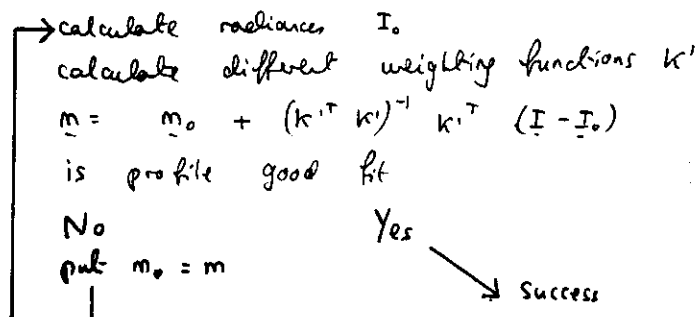 calculate radiances I₀
calculate different weighting functions K'
m = m₀ + (K'ᵀ K')⁻¹ K'ᵀ (I - I₀)
is profile good fit
No Yes
put m₀ = m
success